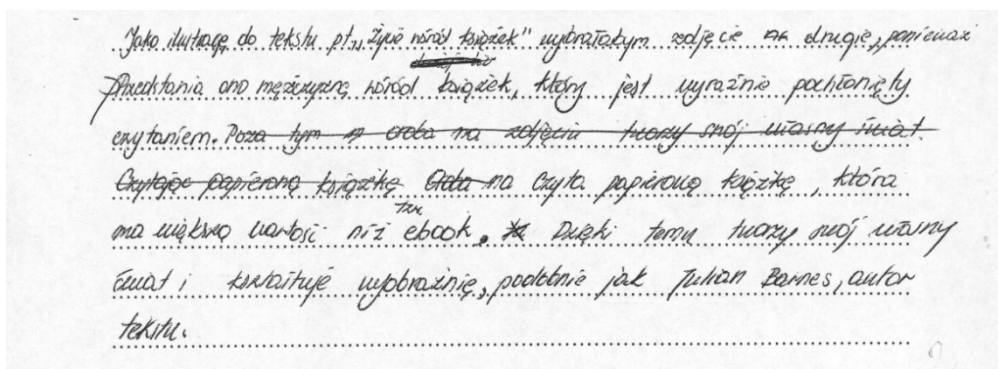 Jako ilustrację do tekstu pt. „Życie wśród książek" wybrałabym zdjęcie drugie, ponieważ
przedstawia ono mężczyznę wśród książek, który jest wyraźnie pochłonięty
czytaniem. Poza tym osoba na zdjęciu tworzy swój własny świat.
Czytając papierową książkę Osoba na czyta papierową książkę, która
ma większą wartość niż tzw. ebook. Dzięki temu tworzy swój własny
świat i kształtuje wyobraźnię, podobnie jak Julian Barnes, autor
tekstu.